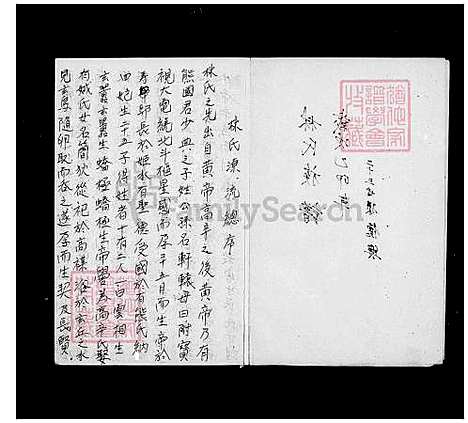 林氏源流總序
林氏之先出自黃帝高辛之後黃帝乃有
熊國君少典之子姓公孫名軒轅母曰附寶
視大電繞北斗樞星感而孕二十五月而生帝於
壽邱長於姬水有聖德受國於有熊氏納
四妃生二十五子得姓者十有二人一曰雲相生
玄囂玄囂生蟜極蟜極生帝嚳為高辛氏娶
有娀氏女名簡狄從祀於高禖浴於玄丘之水
見玄鳥隨卵取而吞之遂孕而生契及長賢
林氏族譜
FamilySearch